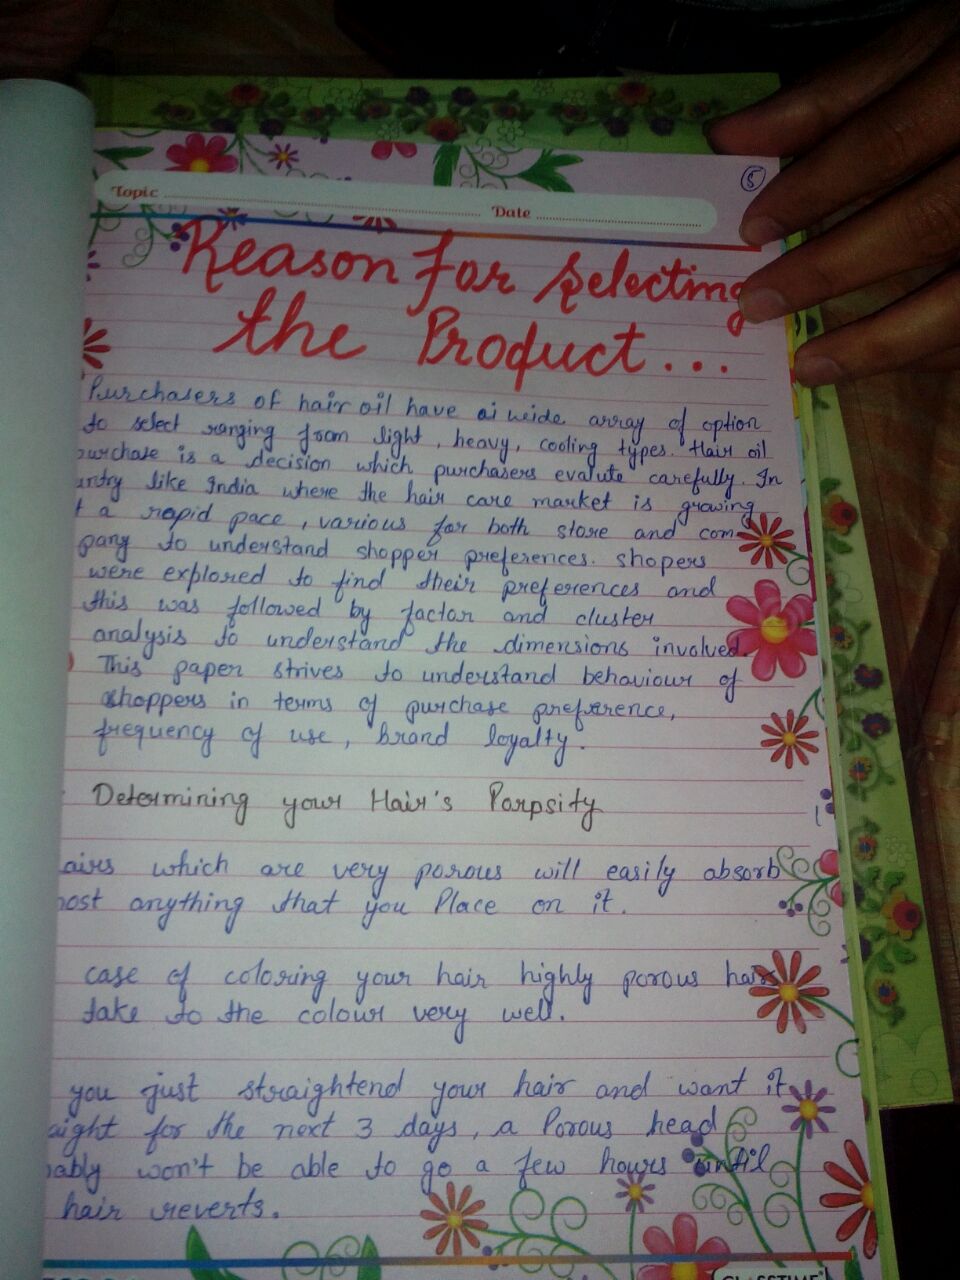 5
Topic
Date
Reason for Selecting
the Product...
Purchasers of hair oil have a wide array of option
to select ranging from light, heavy, cooling types. Hair oil
urchase is a decision which purchasers evalute carefully. In
untry like India where the hair care market is growing
t a rapid pace, various for both store and com-
pang to understand shopper preferences. shopers
were explored to find their preferences and
this was followed by factor and cluster
analysis to understand the dimensions involved.
This paper strives to understand behaviour of
shoppers in terms of purchase preference,
frequency of use, brand loyalty.
Determining your Hair's Porpsity
airs which are very porous will easily absorb
most anything that you Place on it.
case of coloring your hair highly porous hair
take to the colour very well.
you just straightend your hair and want it
aight for the next 3 days, a Porous head
bably won't be able to go a few hours until
hair reverts.
CLASSTIME